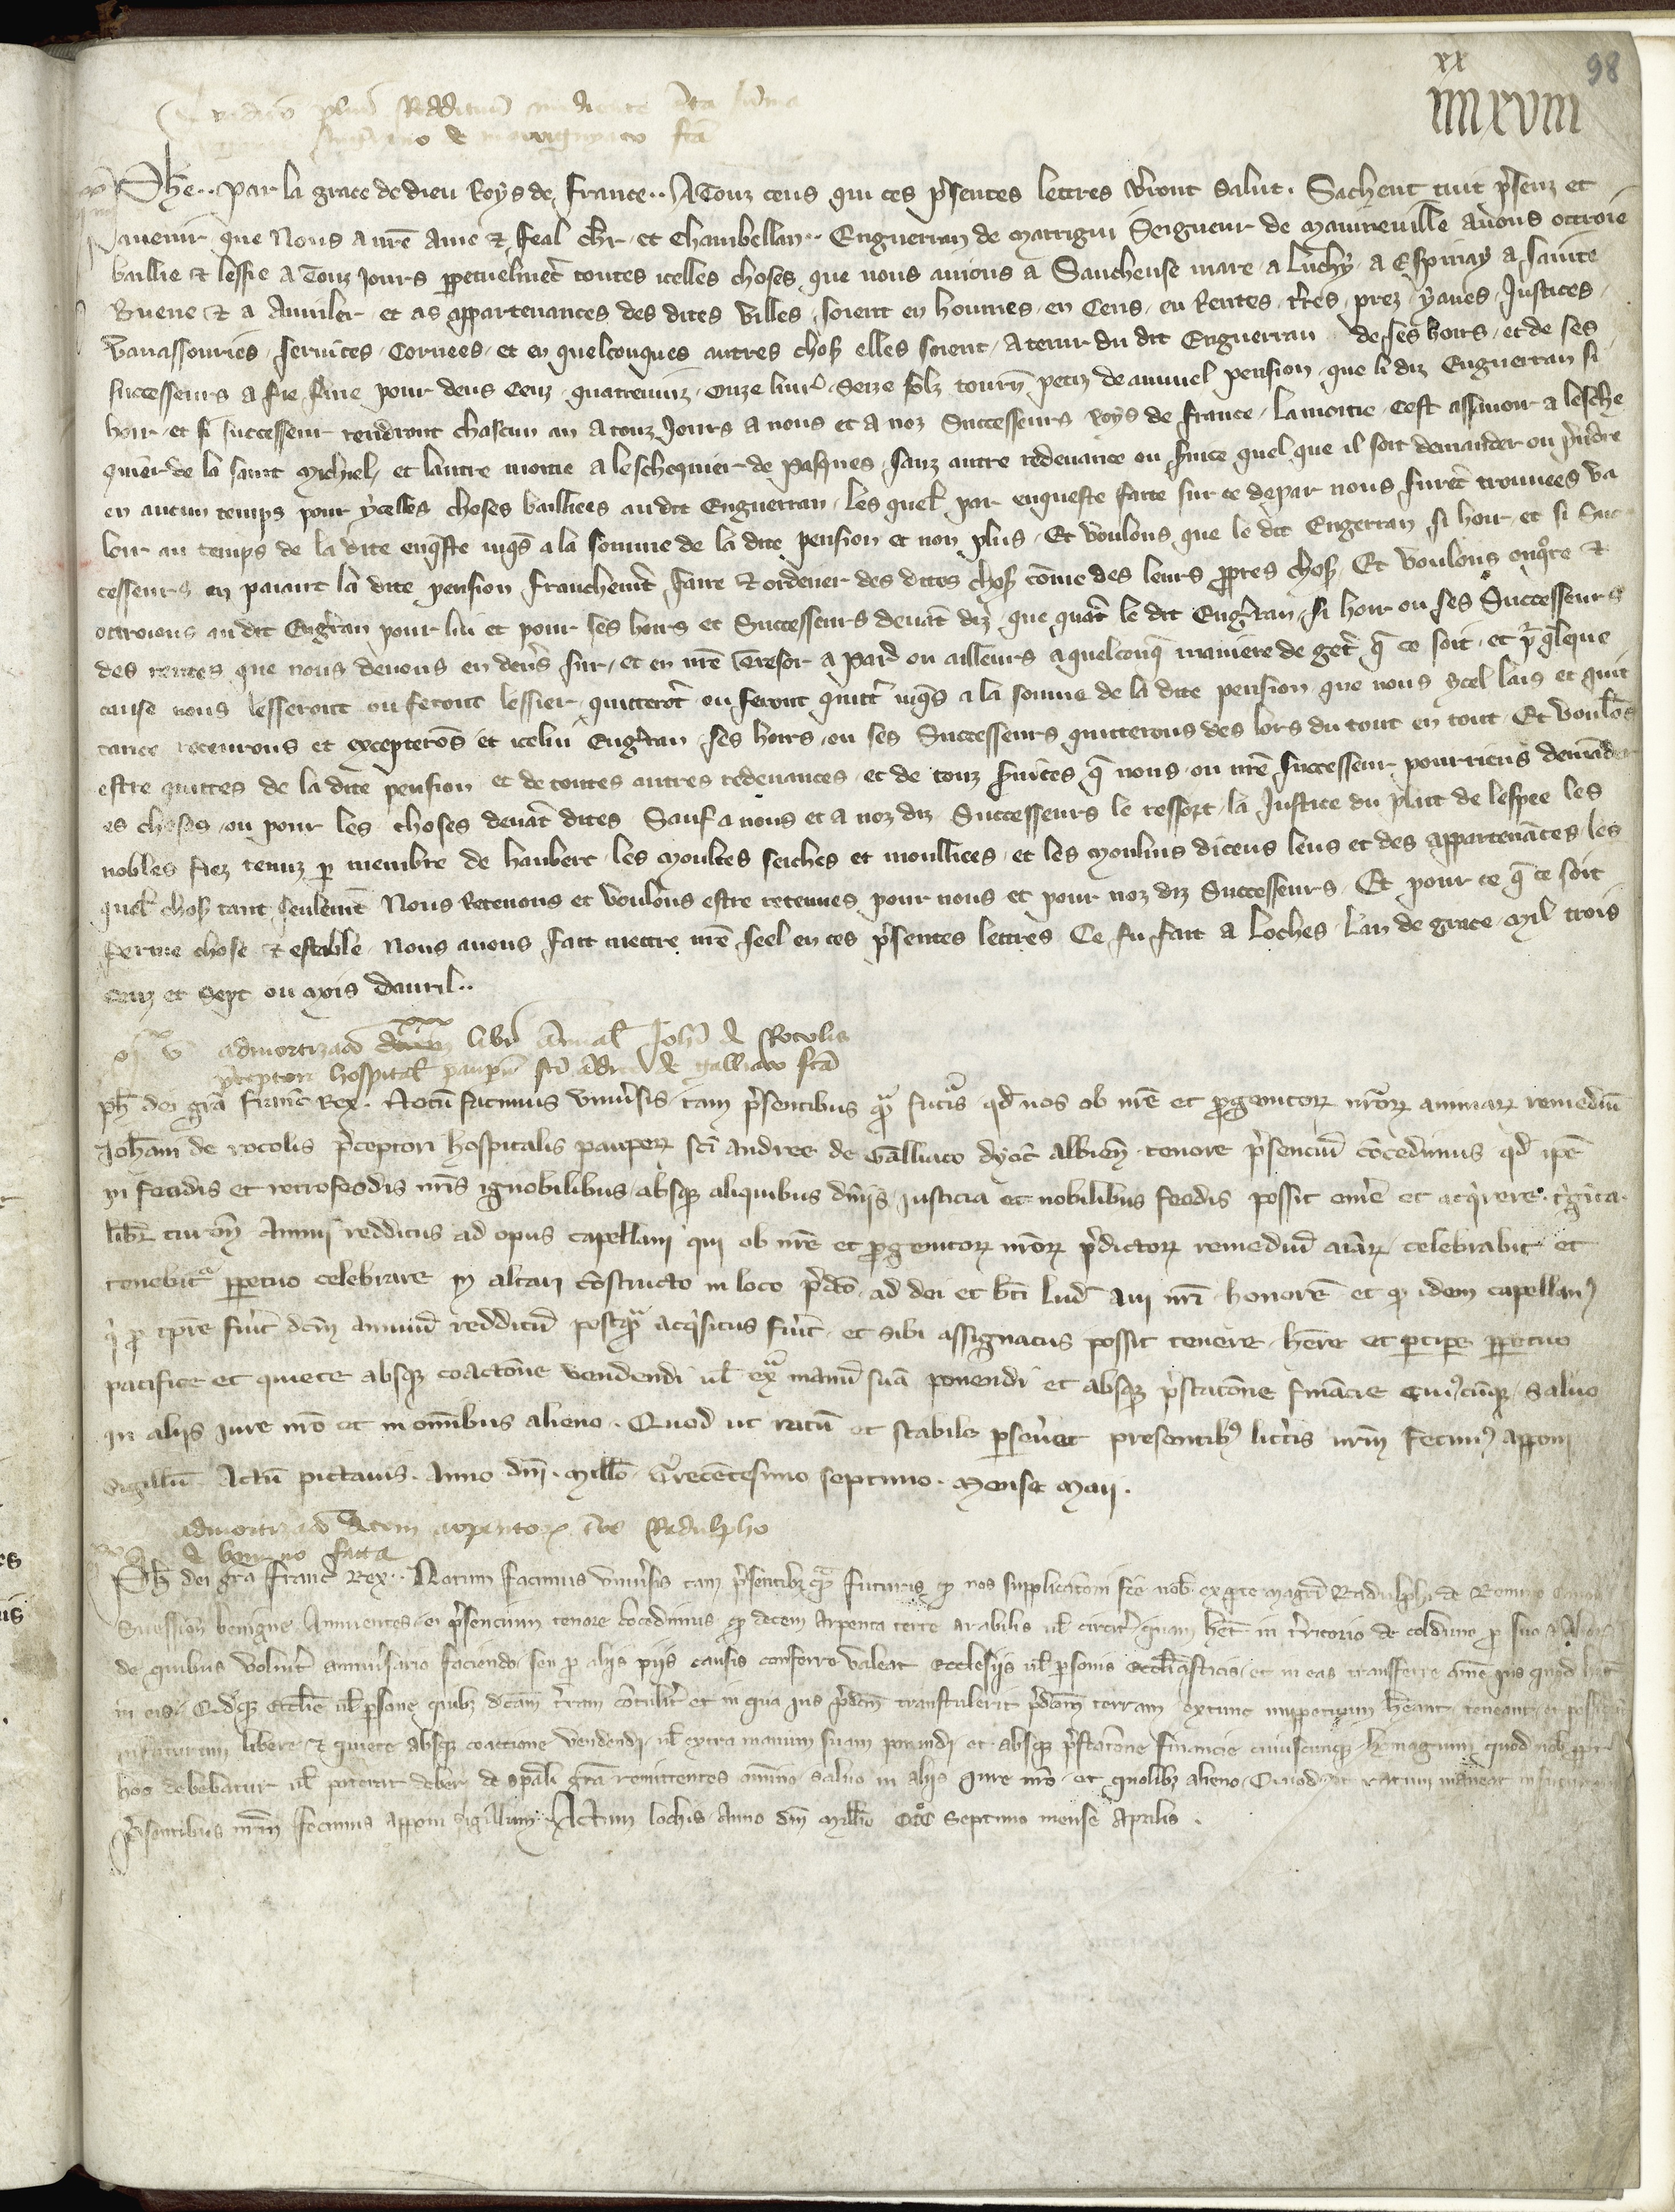 98
xx
IIIIXVIII
redditum mediente
de marrigniaco fca
Phe .. par la grace de dieu Roys de France .. A Touz ceus qui ces p̃sentes lettres v̾ront salut. Sachent tuit p̃senz et
avenir que Nous a nr̃e ame et feal chr̃ et Chambellan .. Enguerran de Marrigni Seigneur de Mainneuille auons octroie
baillie et lessie a Touz Jours ꝑpetuelmẽt toutes icelles choses que nous auions a Saucheuse mare a Luchy a Espinay a sainte
Buene et a Auuiler et as appartenances des dites villes soient en hommes en Cens en Rentes t̃res prez yaues Justices
Vauassouries seruices Coruees et en quelconques autres chos̾ elles soient A tenir du dit Enguerran de ses hoirs et de ses
successeurs a fie ferme pour deus Cenz quatreuinz onze liur̾ seze solz tourñ petiz de annuel pension que li diz Enguerran si
hoir et si successeur rendront chascun an a touz Jours a nous et a noz Successeurs Roys de France la moitie cest assauoir a lesche
quier de la saint Michiel et lautre moitie a leschequier de Pasques sanz autre redeuance ou s̾uice quel que il soit demander ou p̾ndre
en aucun temps pour ycelles choses baillees au dit Enguerran les quel̾ par enqueste faite sur ce depar nous furẽt trouuees va
loir au temps de la dite enq̃ste iuq̃s a la somme de la dite pension et non plus Et voulons que le dit Engerran si hoir et si Suc
cesseurs en paiant la dite pension franchemẽt faire et ordener des dites chos̾ cõme des leurs ꝓpres chos̾ Et voulons onq̃re et
octroions au dit Eng̾ran pour lui et pour ses hoirs et Successeurs deuãt diz que quãt le dit Eng̾ran si hoir ou ses Successeurs
des rentes que nous deuons en deñs sur et en nr̃e Tresor a Par̾ ou ailleurs a quelconq̃ maniere de gẽt q̃ ce soit et p̾ q̃lque
cause nous lesseront ou feront lessier quitterõt ou feront quitt̾ iuq̃s a la somme de la dite pension que nous ycel lais et quit
tance receurons et excepterõs et icelui Eng̾ran ses hoirs ou ses Successeurs quitterons des lors du tout en tout Et voulõs
estre quittes de la dite pension et de toutes autres redeuances et de touz s̾uices q̃ nous ou nr̃e successeur pourriens demãder
es choses ou pour les choses deuãt dites Sauf a nous et a noz diz Successeurs le ressort la Justice du plait de lespee les
nobles fiez tenuz ꝑ membre de haubert les Moultes seiches et moulliees et les Moulins diceus leus et des appartenãces les
quel̾ chos̾ tant seulemẽt Nous Retenons et voulons estre retenues pour nous et pour noz diz Successeurs Et pour ce q̃ ce soit
ferme chose et estable Nous auons fait mettre nr̃e seel en ces p̃sentes lettres Ce fu fait a Loches Lan de grace Mil trois
cenz et Sept ou Mois dauril ..
admortizacio libr̾ ãnual̾ Joh̃i de Rocolis
p̾ceptori hospital̾ paupũ sc̃i ãdree de galliaco fc̃a
ph̃ dei gr̃a Franc̃ Rex. Notũ facimus vniu̾sis tam p̃sentibus qͣ̃ fut̾is qd̾ nos ob nr̃e et ꝓgenitoꝝ nr̃oꝝ animaꝝ remediũ
Joh̃ani de rocolis p̾ceptori hospitalis pauperꝝ sc̃i andree de Galliaco dyoc̃ albieñ tenore p̃senciũ cõcedimus qd̾ ip̃e
in feodis et retrofeodis nr̃is ignobilibus absqꝫ aliquibus dñiis Justicia et nobilibus feodis possit em̾e et acq̾rere t̾ginta
libr̾ turoñ Annui redditus ad opus capellani qui ob nr̃e et ꝓgenitoꝝ nr̃oꝝ p̃dictoꝝ remediũ aĩaꝝ celebrabit et
tenebit̾ ꝑpetuo celebrare in altari cõstructo in loco p̃dc̃o ad dei et bt̃i Lud̾ aui nr̃i honorẽ et qꝫ idem capellan̾
q̾ ꝓ tpr̃e fu̾it dc̃m annuũ redditũ postqͣ̃ acq̾situs fu̾it et sibi assignatus possit tenere hẽre et ꝑcipe ꝑpetuo
pacifice et quiete absqꝫ coactõne vendendi ul̾ exͣ manũ suã ponendi et absqꝫ p̃stacõne finãcie cui̾cũqꝫ Saluo
in aliis iure nr̃o et in om̃ibus alieno. Quod ut ratũ et stabile ꝑseu̾et presentib̾ litt̾is nr̃m fecim̾ apponi
sigillũ Actũ pictauis. Anno dñi. Mill̃o. Trecẽtesimo septimo. Mense Maii.
admortizacio decem arpentoꝝ t̾re Radulpho
de facta
Ph̃ dei gr̃a Franc̃ Rex .. Notum facimus vniu̾sis tam p̃sentibꝫ qͣ̃ futuris qꝫ nos supplicacõni sc̃e nob̾ ex ꝑte mag̃ri Radulphi de
Suession̾ benigne Annuentes ei p̃sencium tenore cõcedimus qꝫ decem arpenta terre arabilis ul̾ circit̾ quam hẽt in t̾ritorio de ꝓ suo
de quibus voluit̾ anniu̾sario faciendo seu ꝓ aliis piis causis conferre valeat Ecclesiis ul̾ ꝑsonis eccl̃iasticis et in eas transferre om̃e ius quod hẽt
in eis Quodqꝫ eccl̃ie ul̾ ꝑsone quibꝫ dc̃am t̾ram cõtulit̾ et in qua ius p̃dc̃m transtulerit p̃dc̃am terram extunc imppetuum hẽant teneant et possideãt
in futurum libere et quiete absqꝫ coactione vendendi ul̾ extra manum suam ponendi et absqꝫ p̃stacõne financie cuiuscunqꝫ homagium quod nob̾ ꝓpt̾
hoc debebatur ul̾ poterat deberi de sp̃ali gr̃a remittentes om̃ino saluo in aliis iure nr̃o et quolibꝫ alieno Quod ut ratum maneat in futurum
p̃sentibus nr̃m fecimus apponi sigillum Actum lochis Anno dñi Mill̃o CCC° Septimo mense Aprilis.